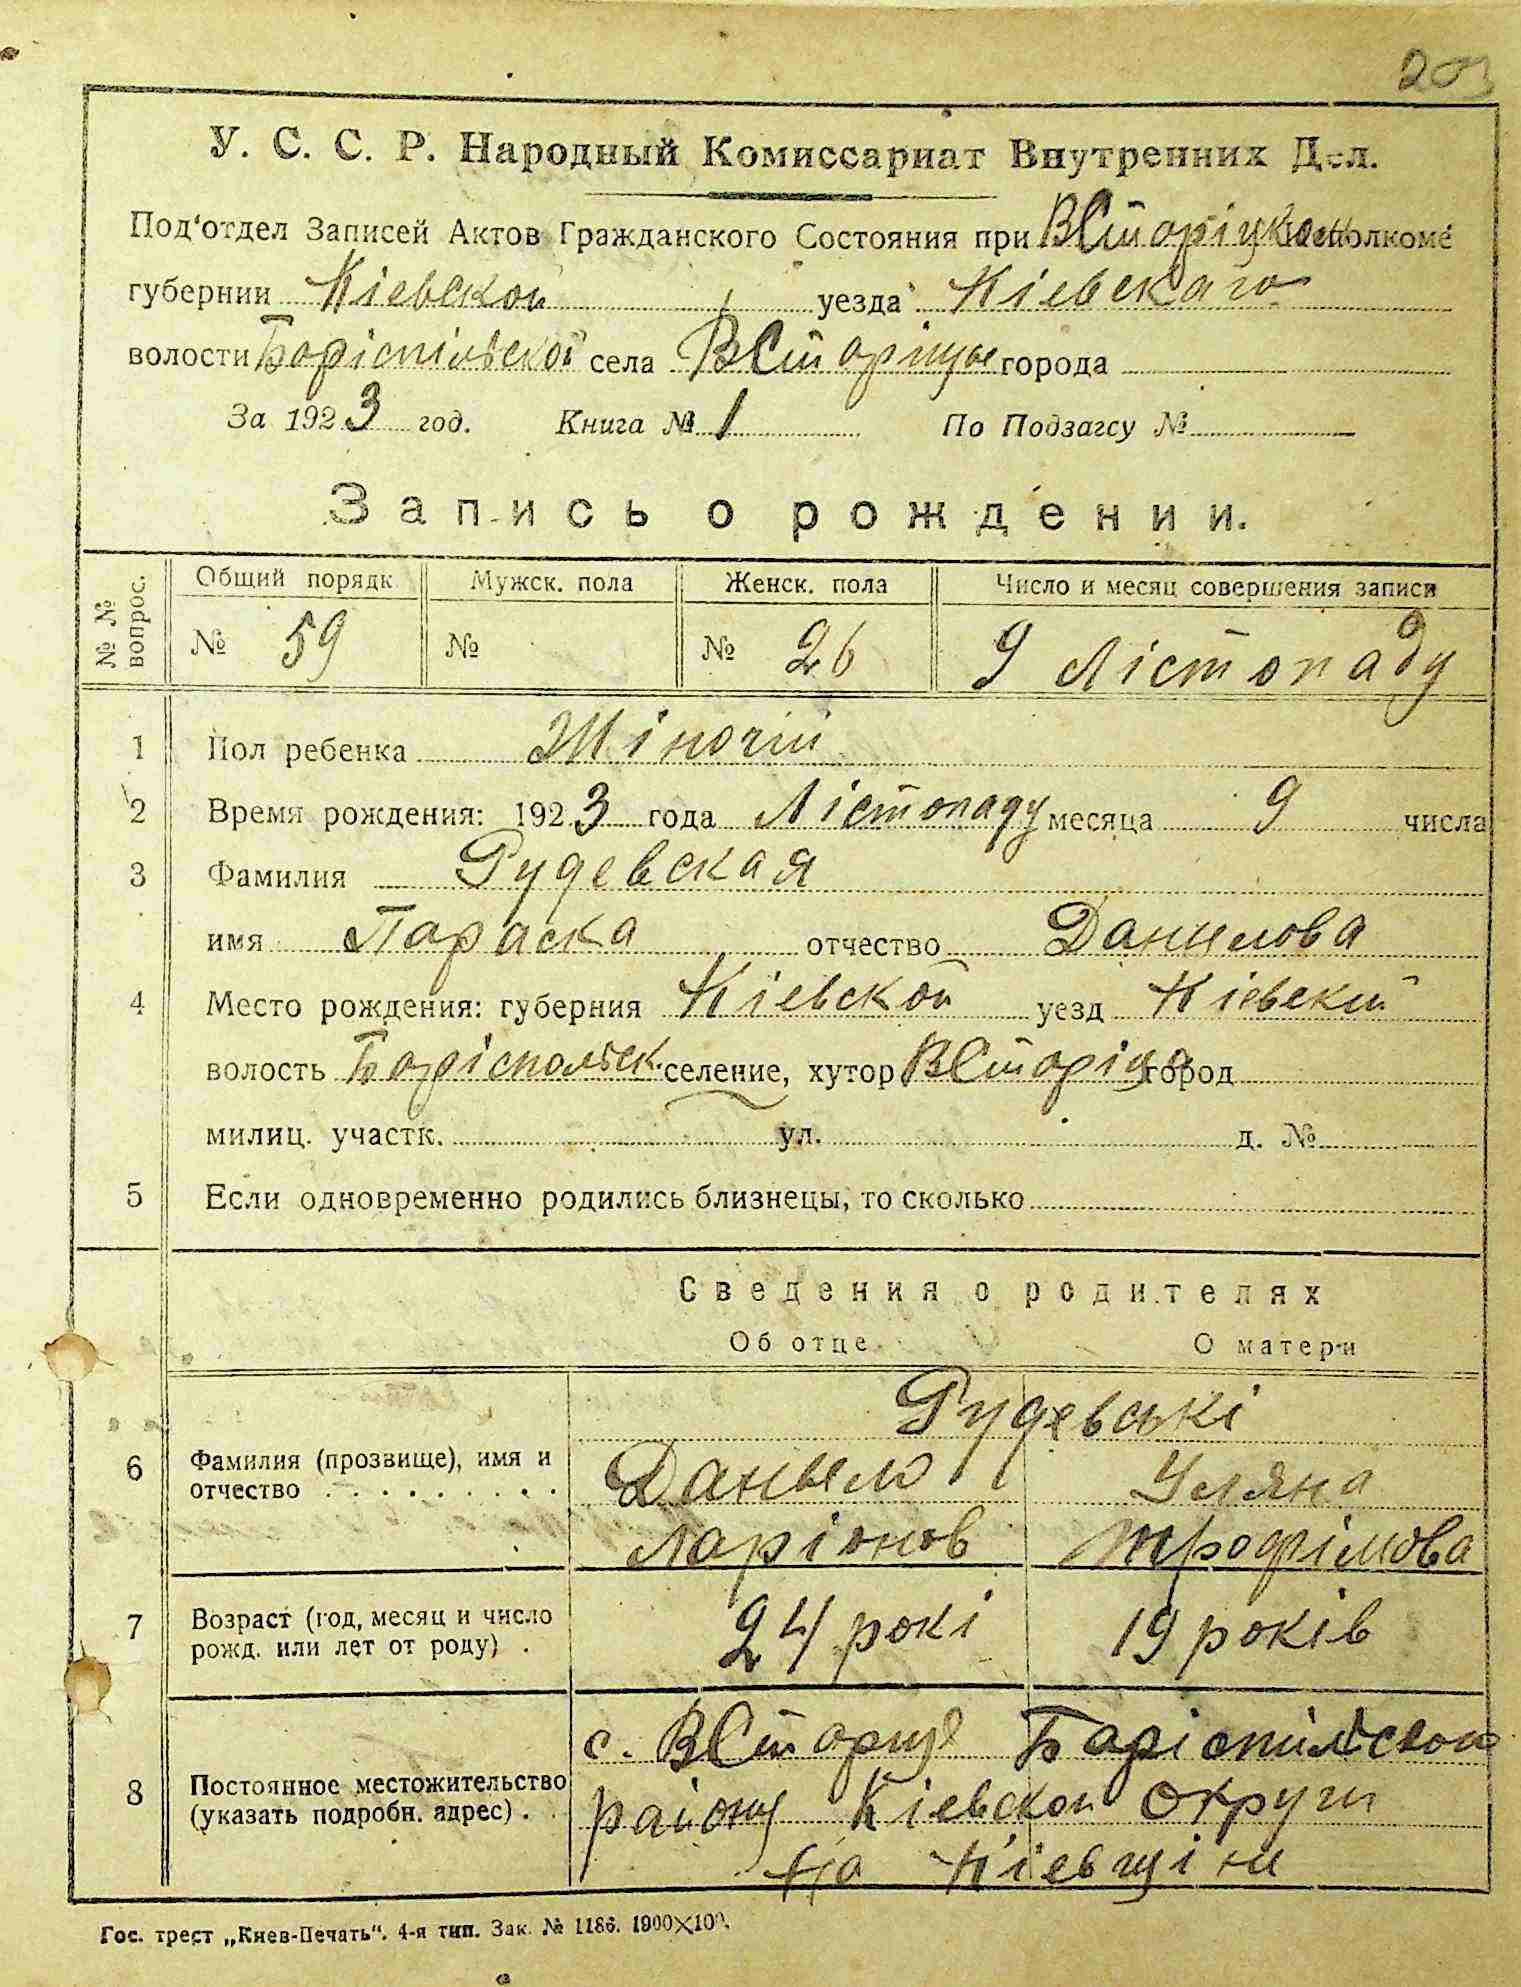 203
У. С. С. Р. Народный Комиссариат Внутренних Дел.
Под‘отдел Записей Актов Гражданского Состояния при ВСтаріцком Исполкоме
губернии Кіевской уезда Кіевскаго
волости Боріспільской села ВСтарице города
За 1923 год. Книга № 1 По Подзагсу №
Запись о рождении.
№ № вопрос. Общий порядк Мужск. пола Женск. пола Число и месяц совершения записи
№ 59 № № 26 9 Лістопаду
1 Пол ребенка Жіночій
2 Время рождения: 1923 года Лістопаду месяца 9 числа
3 Фамилия Рудевская
имя Параска отчество Данилова
4 Место рождения: губерния Кіевской уезд Кіевский
волость Боріспольск. селение, хутор ВСтаріца город
милиц. участк. ул. д. №
5 Если одновременно родились близнецы, то сколько
Сведения о родителях
Об отце О матери
Рудевські
6 Фамилия (прозвище), имя и отчество . . . . . . . . . Даныло Уляна
Ларіонов Трофімова
7 Возраст (год, месяц и число рожд. или лет от роду) . 24 рокі 19 років
8 Постоянное местожительство (указать подробн. адрес) . . с. ВСтариця Баріспильской
району Кіевской округи
на Кіевщіни
Гос. трест „Киев-Печать“. 4-я тип. Зак. № 1186. 1900×100.